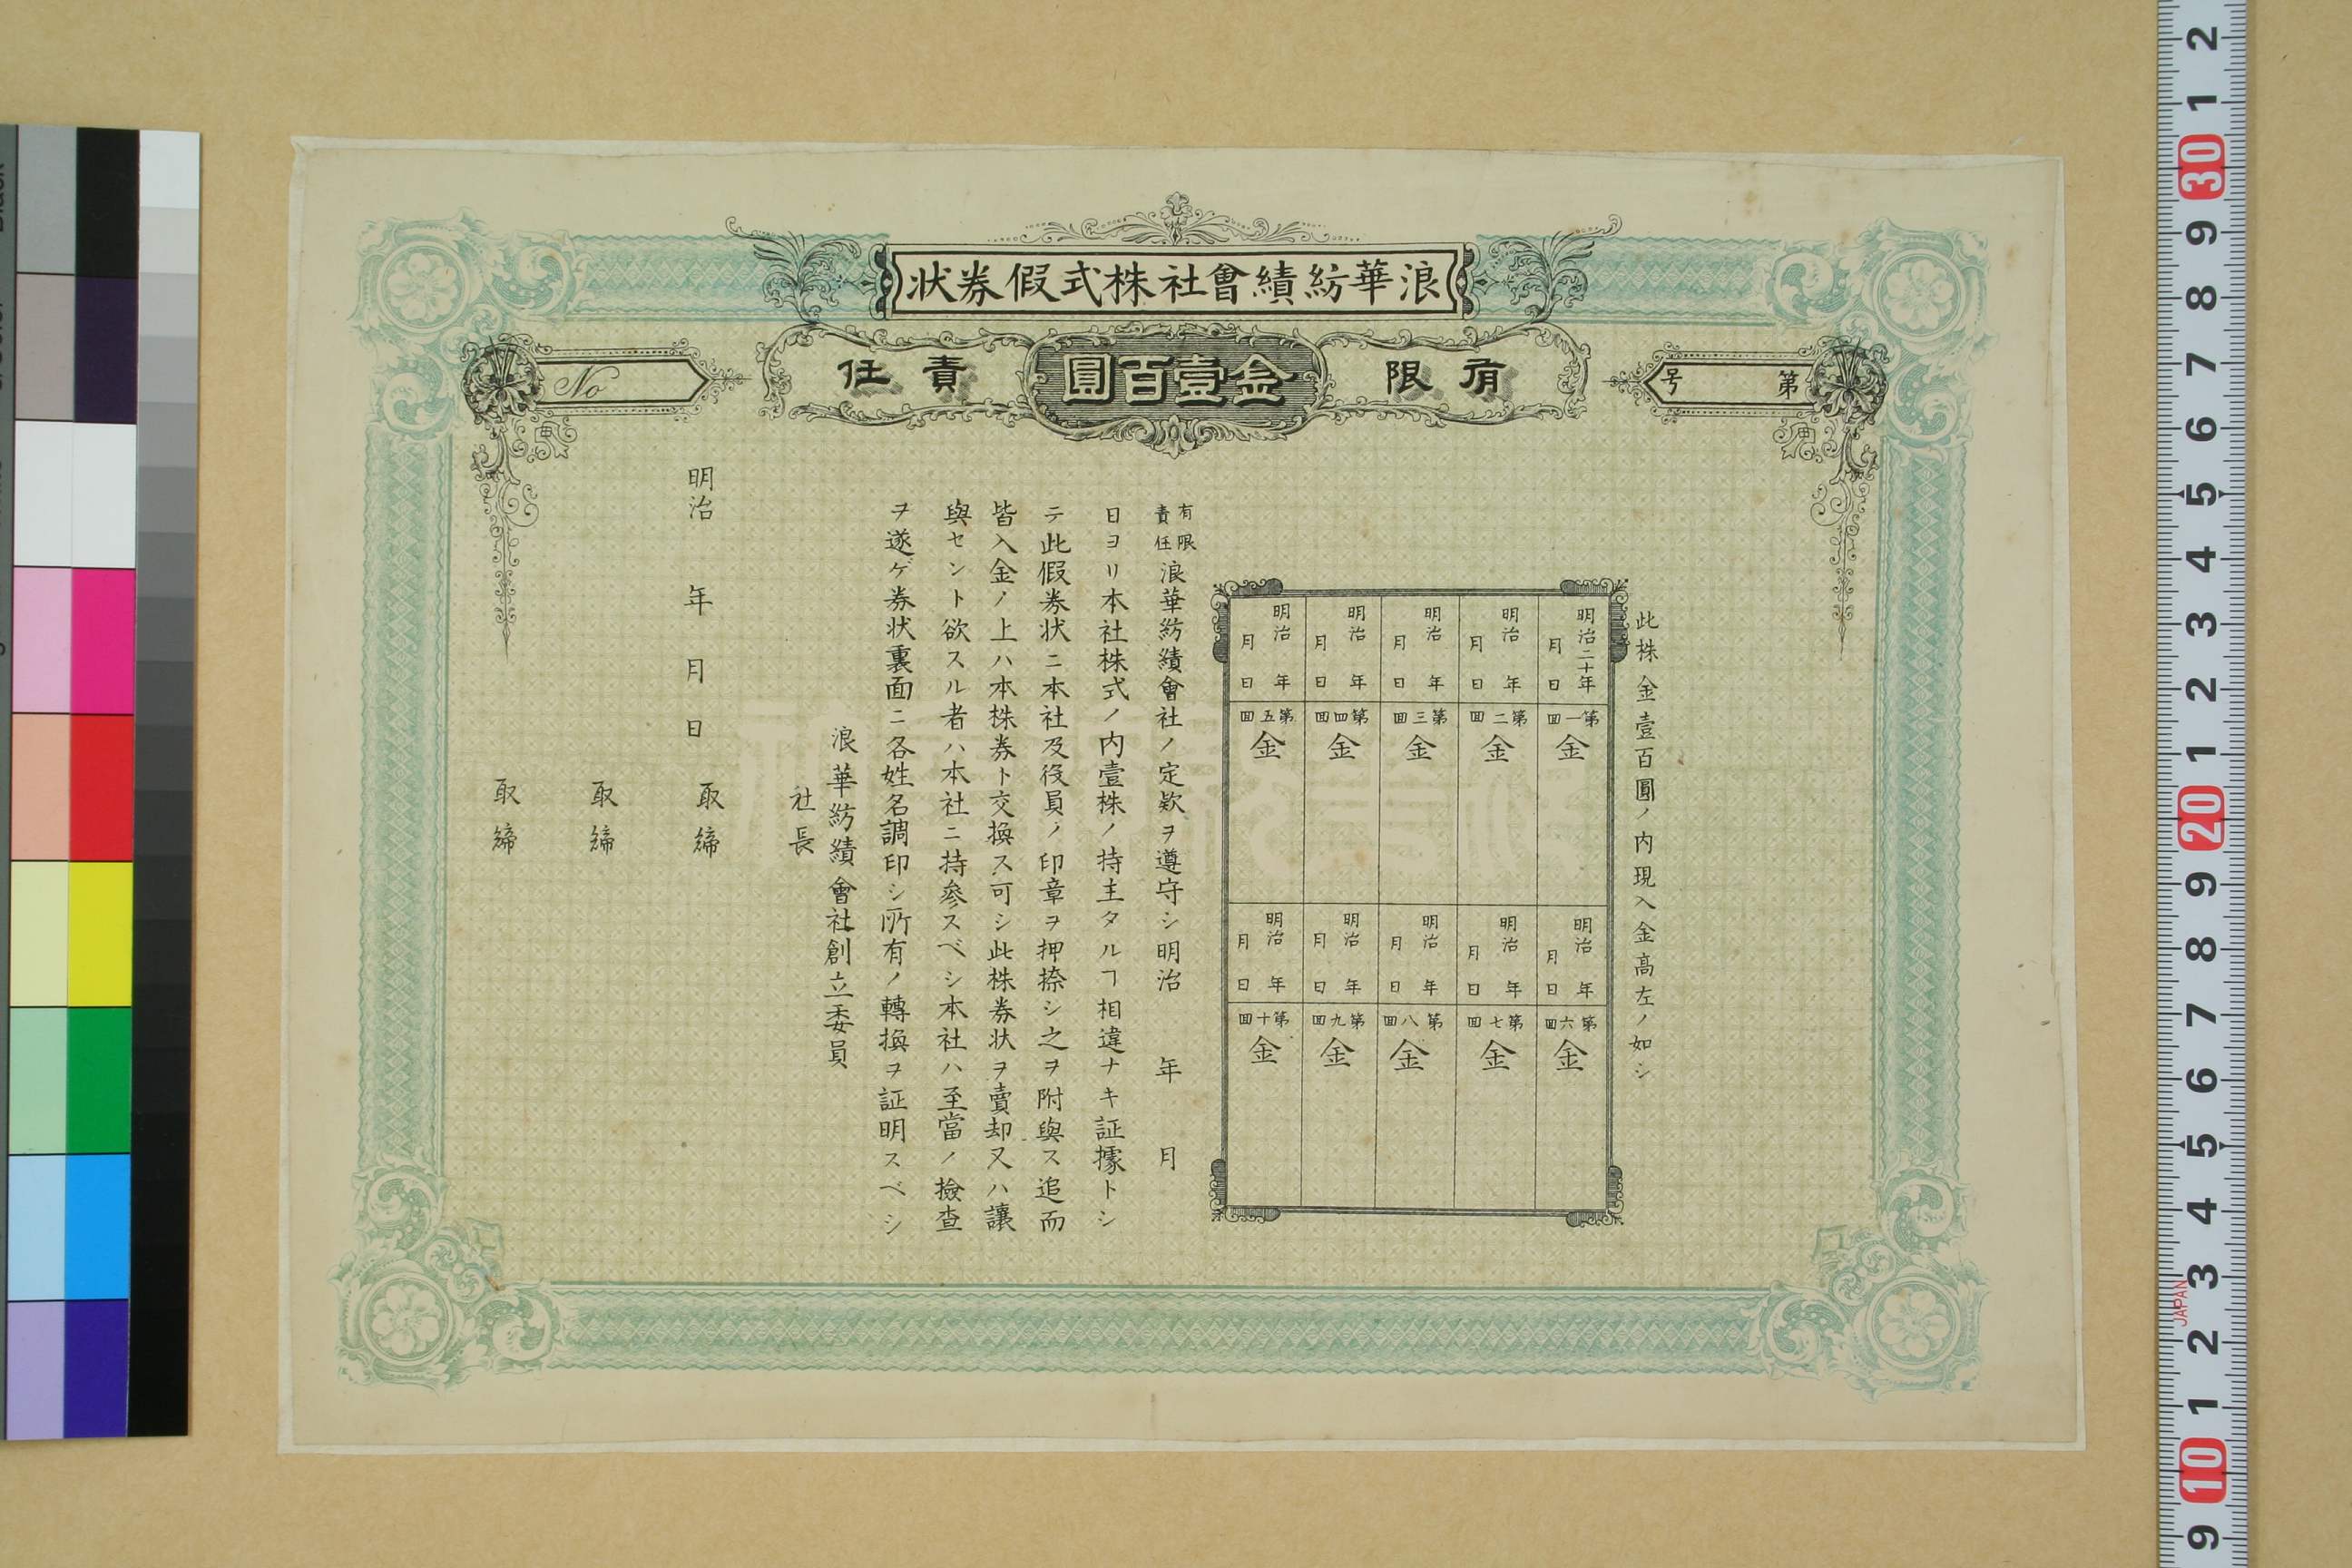 浪華紡績會社株式假券状
有限
金壹百圓
責任
第 号
No
此株金壹百圓ノ内現入金髙左ノ如シ
明治二十年 月 日
第一回
金
明治 年 月 日
第二回
金
明治 年 月 日
第三回
金
明治 年 月 日
第四回
金
明治 年 月 日
第五回
金
明治 年 月 日
第六回
金
明治 年 月 日
第七回
金
明治 年 月 日
第八回
金
明治 年 月 日
第九回
金
明治 年 月 日
第十回
金
有限責任浪華紡績會社ノ定欵ヲ遵守シ明治 年 月
日ヨリ本社株式ノ内壹株ノ持主タルヿ相違ナキ証據トシ
テ此假券状ニ本社及役員ノ印章ヲ押捺シ之ヲ附與ス追而
皆入金ノ上ハ本株券ト交換ス可シ此株券状ヲ賣却又ハ讓
與セント欲スル者ハ本社ニ持參スベシ本社ハ至當ノ撿查
ヲ遂ゲ券状裏面ニ各姓名調印シ所有ノ轉換ヲ証明スベシ
浪華紡績會社創立委員
社長
明治 年 月 日
取締
取締
取締
2
1
30
9
8
7
6
5
4
3
2
1
20
9
8
7
6
5
4
3
JAPAN
2
1
10
9